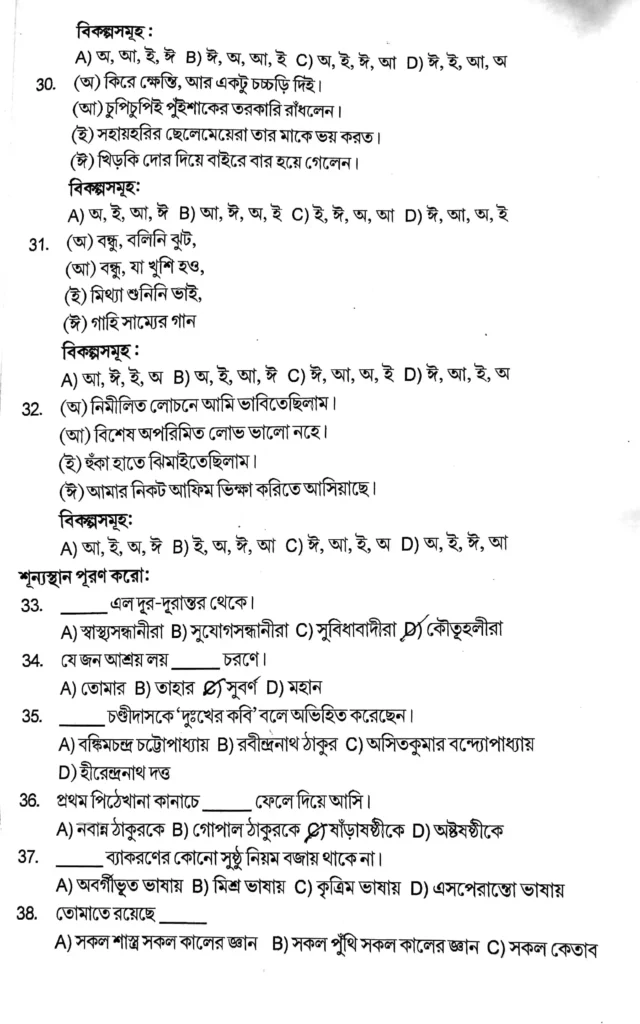 বিকল্পসমূহ :
A) অ, আ, ই, ঈ B) ঈ, অ, আ, ই C) অ, ই, ঈ, আ D) ঈ, ই, আ, অ
30. (অ) কিরে ক্ষেন্তি, আর একটু চচ্চড়ি দিই।
(আ) চুপিচুপিই পুঁইশাকের তরকারি রাঁধলেন।
(ই) সহায়হরির ছেলেমেয়েরা তার মাকে ভয় করত।
(ঈ) খিড়কি দোর দিয়ে বাইরে বার হয়ে গেলেন।
বিকল্পসমূহ:
A) অ, ই, আ, ঈ B) আ, ঈ, অ, ই C) ই, ঈ, অ, আ D) ঈ, আ, অ, ই
31. (অ) বন্ধু, বলিনি ঝুট,
(আ) বন্ধু, যা খুশি হও,
(ই) মিথ্যা শুনিনি ভাই,
(ঈ) গাহি সাম্যের গান
বিকল্পসমূহ :
A) আ, ঈ, ই, অ B) অ, ই, আ, ঈ C) ঈ, আ, অ, ই D) ঈ, আ, ই, অ
32. (অ) নিমীলিত লোচনে আমি ভাবিতেছিলাম।
(আ) বিশেষ অপরিমিত লোভ ভালো নহে।
(ই) হুঁকা হাতে ঝিমাইতেছিলাম।
(ঈ) আমার নিকট আফিম ভিক্ষা করিতে আসিয়াছে।
বিকল্পসমূহ:
A) আ, ই, অ, ঈ B) ই, অ, ঈ, আ C) ঈ, আ, ই, অ D) অ, ই, ঈ, আ
শূন্যস্থান পূরণ করো:
33. ______ এল দূর-দূরান্তর থেকে।
A) স্বাস্থ্যসন্ধানীরা B) সুযোগসন্ধানীরা C) সুবিধাবাদীরা D) কৌতূহলীরা
34. যে জন আশ্রয় লয় ______ চরণে।
A) তোমার B) তাহার C) সুবর্ণ D) মহান
35. ______ চণ্ডীদাসকে ‘দুঃখের কবি’ বলে অভিহিত করেছেন।
A) বঙ্কিমচন্দ্র চট্টোপাধ্যায় B) রবীন্দ্রনাথ ঠাকুর C) অসিতকুমার বন্দ্যোপাধ্যায়
D) হীরেন্দ্রনাথ দত্ত
36. প্রথম পিঠেখানা কানাচে ______ ফেলে দিয়ে আসি।
A) নবান্ন ঠাকুরকে B) গোপাল ঠাকুরকে C) ষাঁড়াষষ্ঠীকে D) অষ্টষষ্ঠীকে
37. ______ ব্যাকরণের কোনো সুষ্ঠু নিয়ম বজায় থাকে না।
A) অবর্গীভূত ভাষায় B) মিশ্র ভাষায় C) কৃত্রিম ভাষায় D) এসপেরান্তো ভাষায়
38. তোমাতে রয়েছে ______
A) সকল শাস্ত্র সকল কালের জ্ঞান B) সকল পুঁথি সকল কালের জ্ঞান C) সকল কেতাব